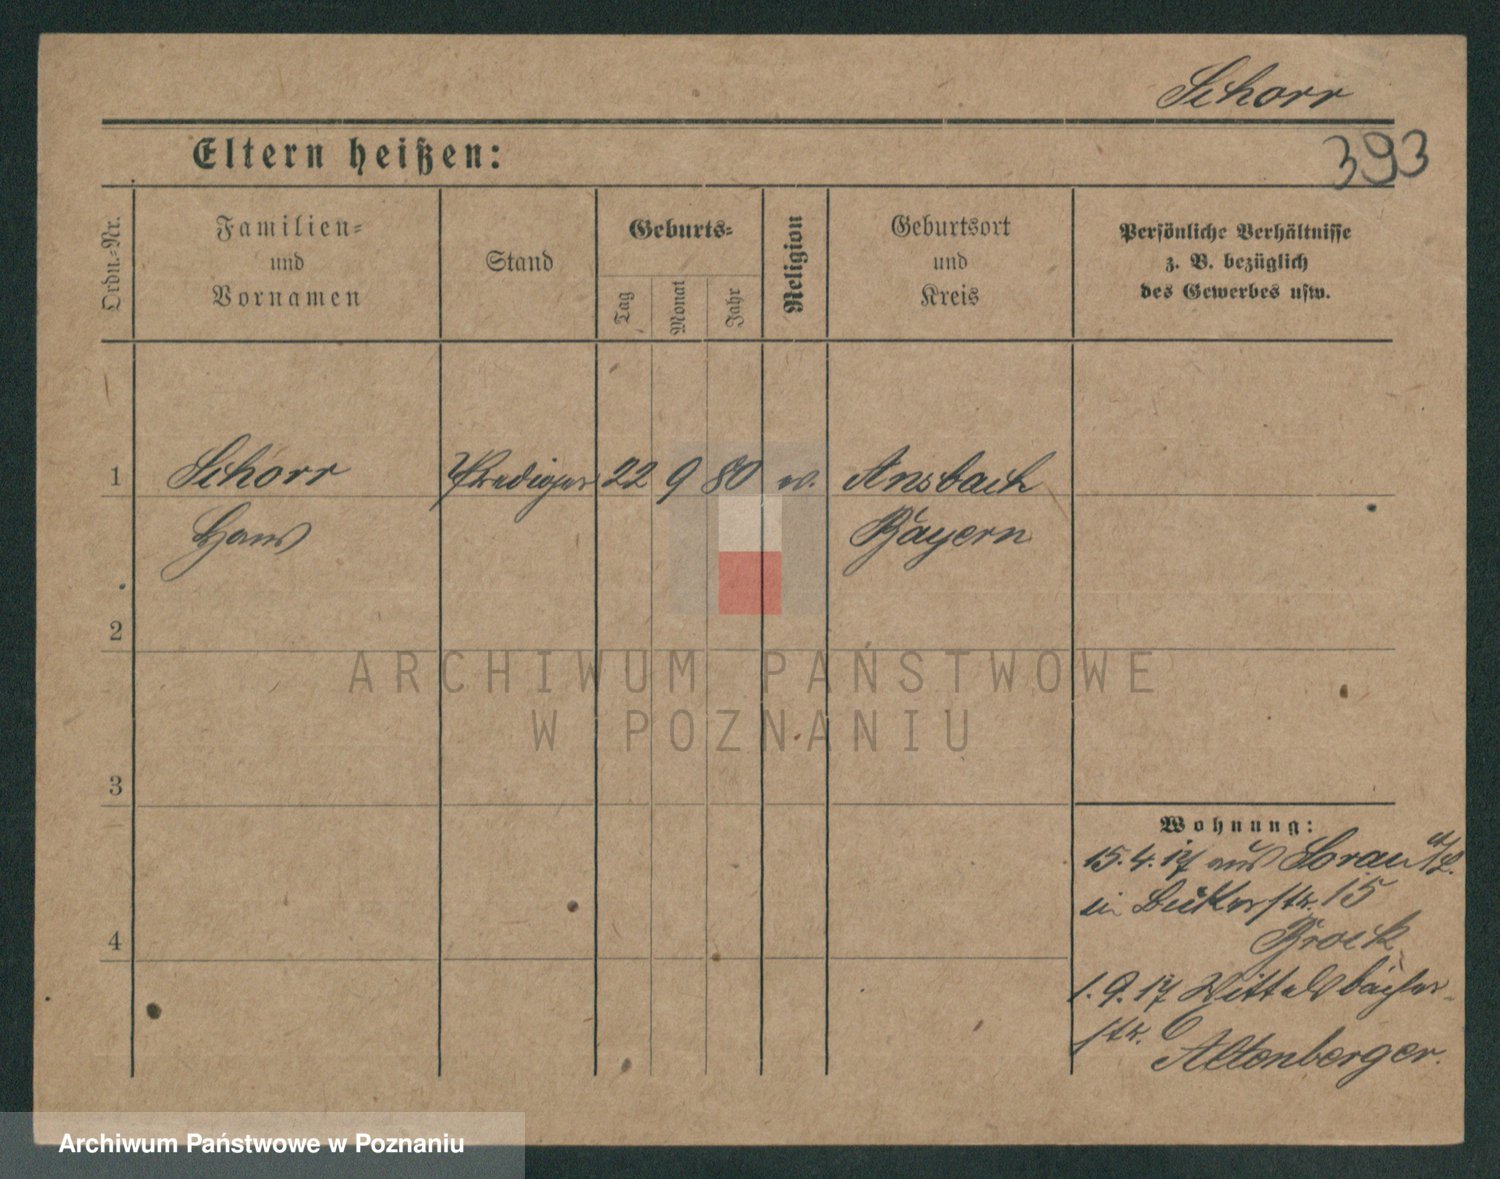 Schorr
393
Eltern heißen:
Ordn.-Nr.
Familien-
und
Vornamen
Stand
Geburts-
Tag
Monat
Jahr
Religion
Geburtsort
und
Kreis
Persönliche Verhältnisse
z. B. bezüglich
des Gewerbes usw.
1 Schorr Prediger 22 9 80 ev. Ansbach
Hans Bayern
2
3
4
ARCHIWUM PAŃSTWOWE
W POZNANIU
Wohnung:
15.4.17 aus Sorau N/L.
in Bäckerstr. 15
Brock
1.9.17 Wittelsbacher-
str. 6
Altenberger.
Archiwum Państwowe w Poznaniu